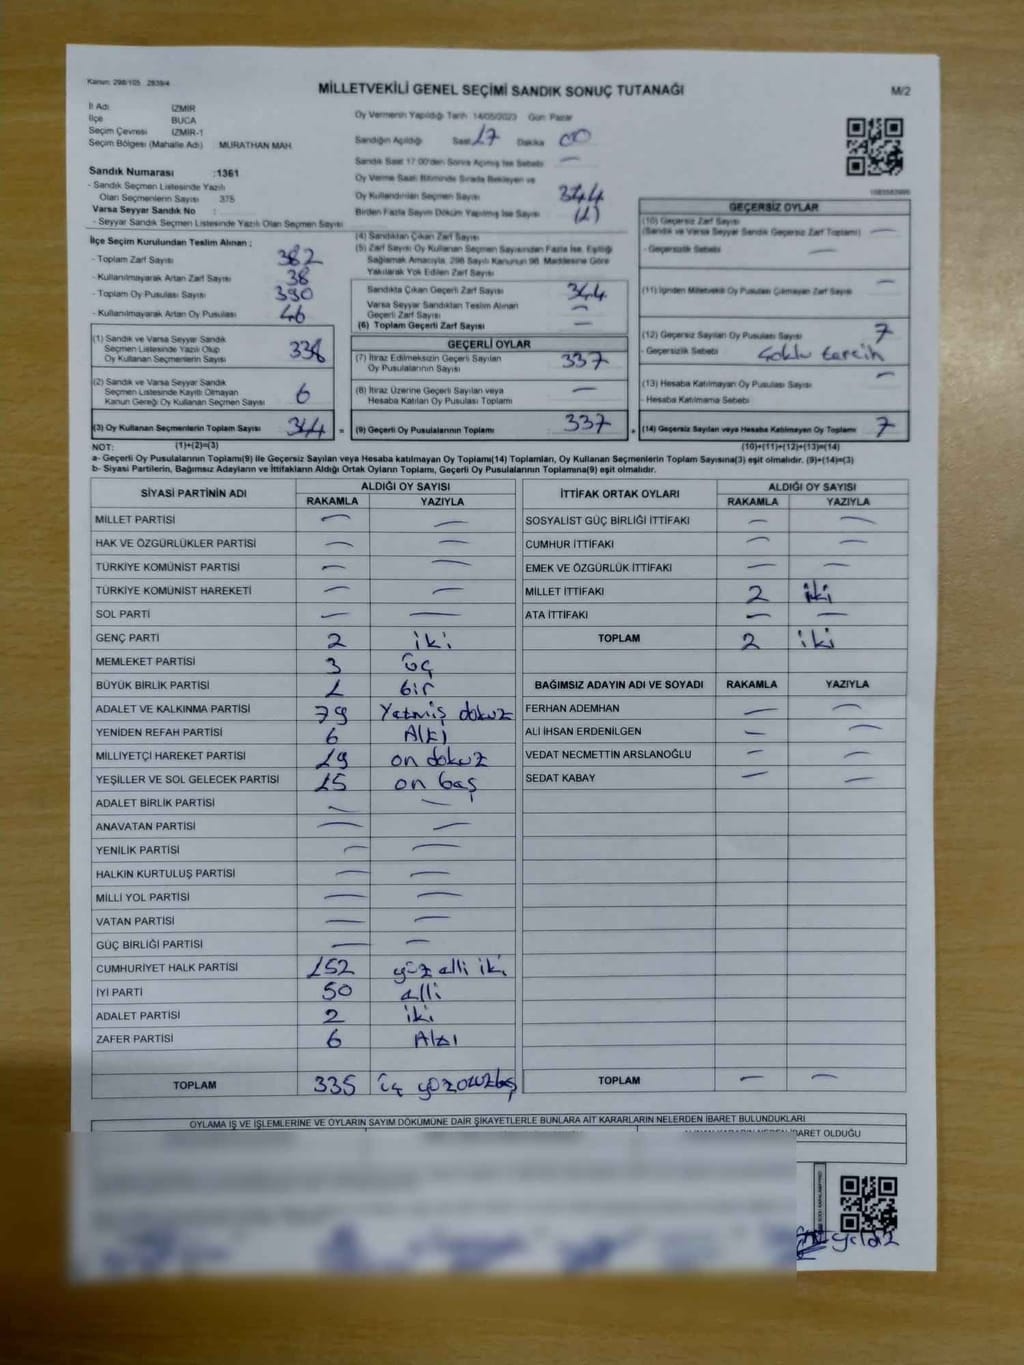 Kanun: 298/105 2839/4
MİLLETVEKİLİ GENEL SEÇİMİ SANDIK SONUÇ TUTANAĞI
M/2
İl Adı İZMİR
İlçe BUCA
Seçim Çevresi İZMİR-1
Seçim Bölgesi (Mahalle Adı) MURATHAN MAH.
Sandık Numarası :1361
- Sandık Seçmen Listesinde Yazılı
Olan Seçmenlerin Sayısı 375
Varsa Seyyar Sandık No :
- Seyyar Sandık Seçmen Listesinde Yazılı Olan Seçmen Sayısı
Oy Vermenin Yapıldığı Tarih 14/05/2023 Gün: Pazar
Sandığın Açıldığı Saat 17 Dakika 00
Sandık Saat 17:00'den Sonra Açılmış İse Sebebi —
Oy Verme Saati Bitiminde Sırada Bekleyen ve
Oy Kullandırılan Seçmen Sayısı 344
Birden Fazla Sayım Döküm Yapılmış İse Sayısı (1)
İlçe Seçim Kurulundan Teslim Alınan ;
- Toplam Zarf Sayısı 382
- Kullanılmayarak Artan Zarf Sayısı 38
- Toplam Oy Pusulası Sayısı 390
- Kullanılmayarak Artan Oy Pusulası 46
(1) Sandık ve Varsa Seyyar Sandık
Seçmen Listesinde Yazılı Olup
Oy Kullanan Seçmenlerin Sayısı 338
(2) Sandık ve Varsa Seyyar Sandık
Seçmen Listesinde Kayıtlı Olmayan
Kanun Gereği Oy Kullanan Seçmen Sayısı 6
(3) Oy Kullanan Seçmenlerin Toplam Sayısı 344 =
(4) Sandıktan Çıkan Zarf Sayısı
(5) Zarf Sayısı Oy Kullanan Seçmen Sayısından Fazla İse, Eşitliği
Sağlamak Amacıyla, 298 Sayılı Kanunun 98. Maddesine Göre
Yakılarak Yok Edilen Zarf Sayısı —
Sandıkta Çıkan Geçerli Zarf Sayısı 344
Varsa Seyyar Sandıktan Teslim Alınan
Geçerli Zarf Sayısı —
(6) Toplam Geçerli Zarf Sayısı —
GEÇERLİ OYLAR
(7) İtiraz Edilmeksizin Geçerli Sayılan
Oy Pusulalarının Sayısı 337
(8) İtiraz Üzerine Geçerli Sayılan veya
Hesaba Katılan Oy Pusulası Toplamı —
(9) Geçerli Oy Pusulalarının Toplamı 337 +
GEÇERSİZ OYLAR
(10) Geçersiz Zarf Sayısı
(Sandık ve Varsa Seyyar Sandık Geçersiz Zarf Toplamı) —
- Geçersizlik Sebebi —
(11) İçinden Milletvekili Oy Pusulası Çıkmayan Zarf Sayısı —
(12) Geçersiz Sayılan Oy Pusulası Sayısı 7
- Geçersizlik Sebebi Çoklu tercih
(13) Hesaba Katılmayan Oy Pusulası Sayısı —
- Hesaba Katılmama Sebebi
(14) Geçersiz Sayılan veya Hesaba Katılmayan Oy Toplamı 7
NOT: (1)+(2)=(3) (10)+(11)+(12)+(13)=(14)
a- Geçerli Oy Pusulalarının Toplamı(9) ile Geçersiz Sayılan veya Hesaba katılmayan Oy Toplamı(14) Toplamları, Oy Kullanan Seçmenlerin Toplam Sayısına(3) eşit olmalıdır. (9)+(14)=(3)
b- Siyasi Partilerin, Bağımsız Adayların ve İttifakların Aldığı Ortak Oyların Toplamı, Geçerli Oy Pusulalarının Toplamına(9) eşit olmalıdır.
SİYASİ PARTİNİN ADI ALDIĞI OY SAYISI
RAKAMLA YAZIYLA
MİLLET PARTİSİ — —
HAK VE ÖZGÜRLÜKLER PARTİSİ — —
TÜRKİYE KOMÜNİST PARTİSİ — —
TÜRKİYE KOMÜNİST HAREKETİ — —
SOL PARTİ — —
GENÇ PARTİ 2 iki
MEMLEKET PARTİSİ 3 üç
BÜYÜK BİRLİK PARTİSİ 1 bir
ADALET VE KALKINMA PARTİSİ 79 Yetmiş dokuz
YENİDEN REFAH PARTİSİ 6 Altı
MİLLİYETÇİ HAREKET PARTİSİ 19 on dokuz
YEŞİLLER VE SOL GELECEK PARTİSİ 15 on beş
ADALET BİRLİK PARTİSİ — —
ANAVATAN PARTİSİ — —
YENİLİK PARTİSİ — —
HALKIN KURTULUŞ PARTİSİ — —
MİLLİ YOL PARTİSİ — —
VATAN PARTİSİ — —
GÜÇ BİRLİĞİ PARTİSİ — —
CUMHURİYET HALK PARTİSİ 152 yüz elli iki
İYİ PARTİ 50 elli
ADALET PARTİSİ 2 iki
ZAFER PARTİSİ 6 Altı
TOPLAM 335 üç yüz otuz beş
İTTİFAK ORTAK OYLARI ALDIĞI OY SAYISI
RAKAMLA YAZIYLA
SOSYALİST GÜÇ BİRLİĞİ İTTİFAKI — —
CUMHUR İTTİFAKI — —
EMEK VE ÖZGÜRLÜK İTTİFAKI — —
MİLLET İTTİFAKI 2 iki
ATA İTTİFAKI — —
TOPLAM 2 iki
BAĞIMSIZ ADAYIN ADI VE SOYADI RAKAMLA YAZIYLA
FERHAN ADEMHAN — —
ALİ İHSAN ERDENİLGEN — —
VEDAT NECMETTİN ARSLANOĞLU — —
SEDAT KABAY — —
TOPLAM — —
OYLAMA İŞ VE İŞLEMLERİNE VE OYLARIN SAYIM DÖKÜMÜNE DAİR ŞİKAYETLERLE BUNLARA AİT KARARLARIN NELERDEN İBARET BULUNDUKLARI
İBARET OLDUĞU